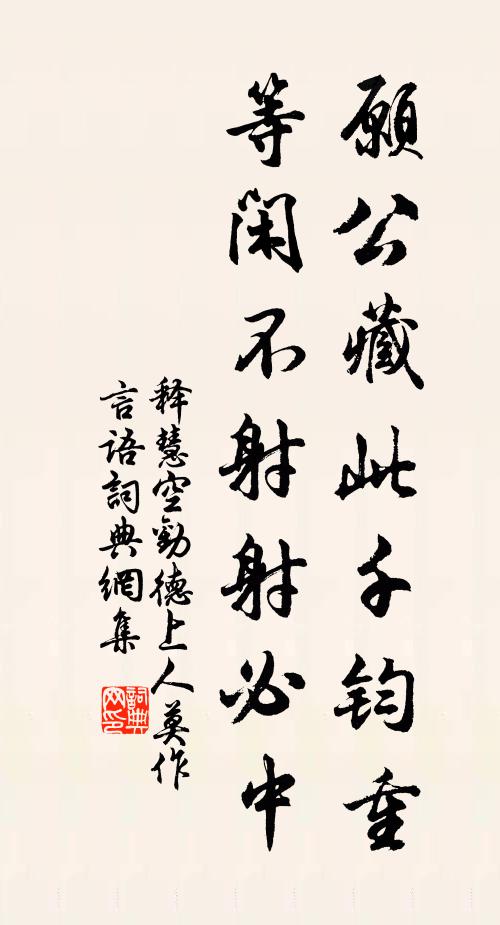 願公藏此千鈞重
等閑不射射必中
释慧空勸德上人莫作
言语詞典網集
詞典网印